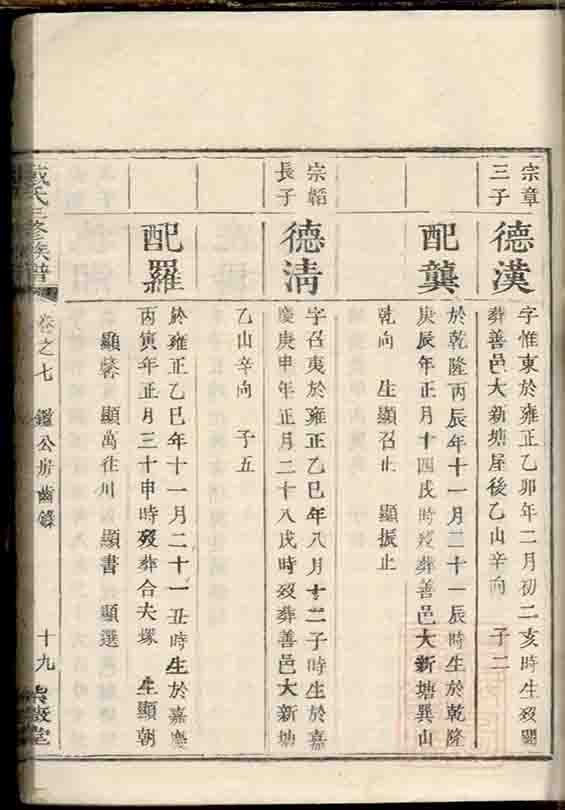 宗章
三子
德漢
字惟東於雍正乙卯年二月初二亥時生歿闕
葬善邑大新塘屋後乙山辛向 子二
配龔
於乾隆丙辰年十一月二十一辰時生於乾隆
庚辰年正月十四戌時歿葬善邑大新塘巽山
乾向 生顯召止 顯振止
宗韜
長子
德清
字召夷於雍正乙巳年八月十二子時生於嘉
慶庚申年正月二十八戌時歿葬善邑大新塘
乙山辛向 子五
配羅
於雍正乙巳年十一月二十一丑時生於嘉慶
丙寅年正月三十申時歿葬合夫塚 生顯朝
顯馨 顯萬往川 顯書 顯選
戴氏三修族譜
卷之七 鑑公房齒錄
十九
堂